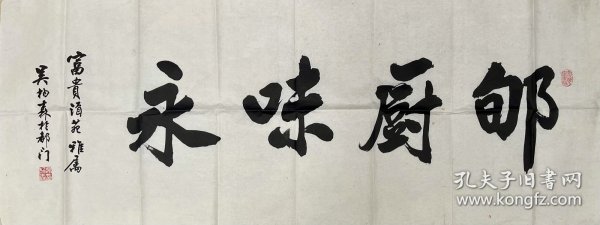 郇厨味永
富贵酒苑雅属
吴柏森于都门
孔夫子旧书网
www.kongfz.com